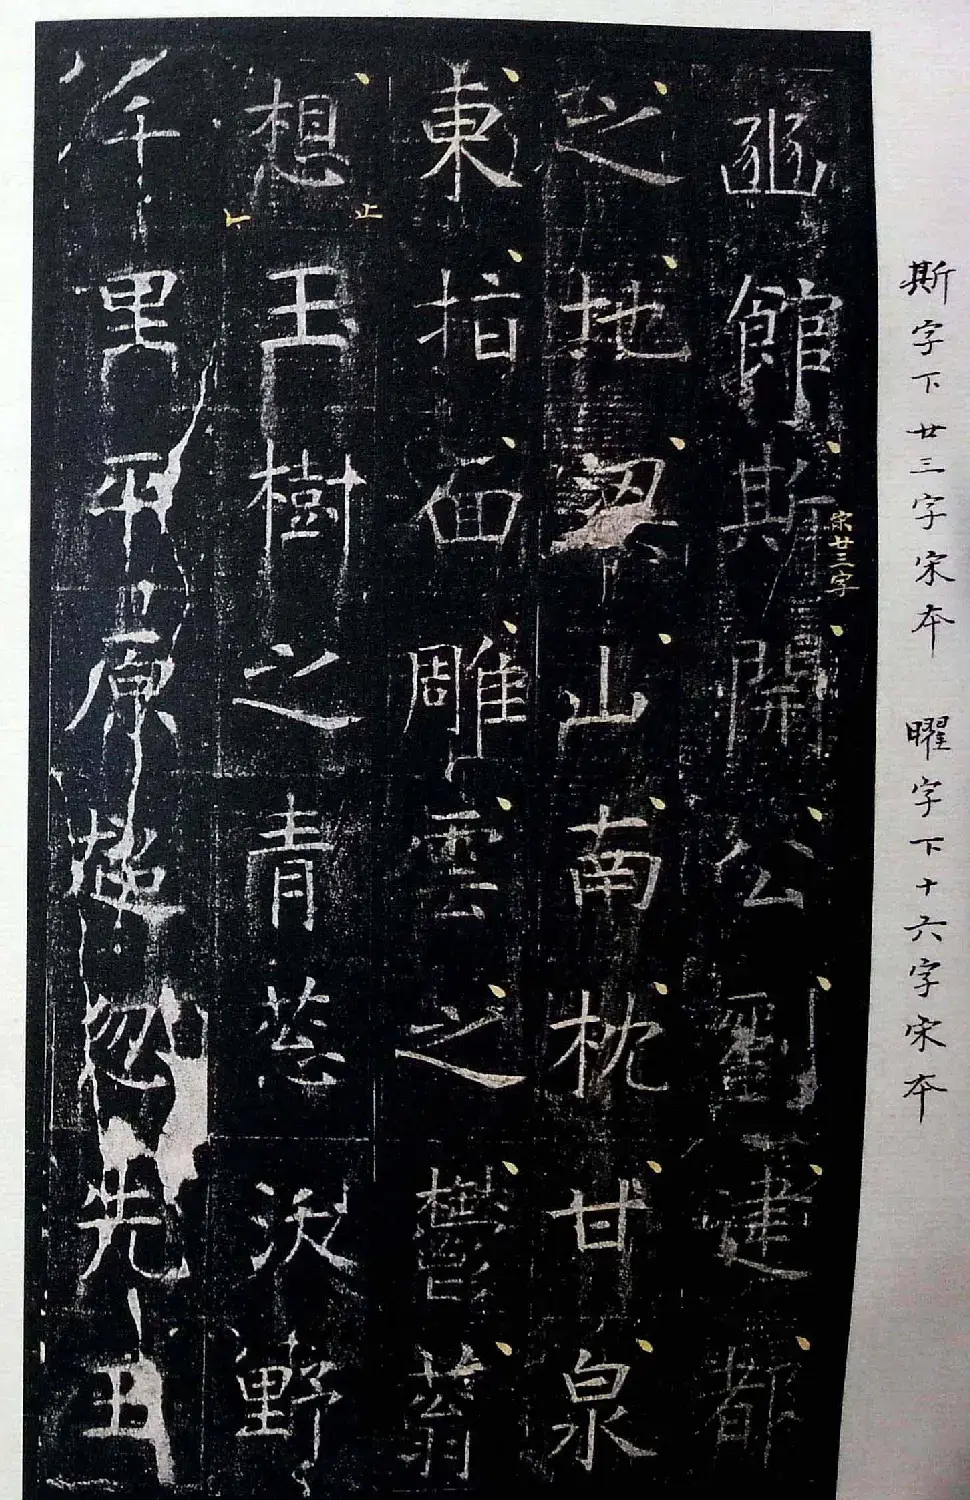 斯字下廿三字宋本　曜字下十六字宋本
豳館斯開公劉建都
宋廿三字
之地山南枕甘泉
東指面雕雲之鬱蓊
想玉樹之青葱泱野
止
千里平原超忽先王